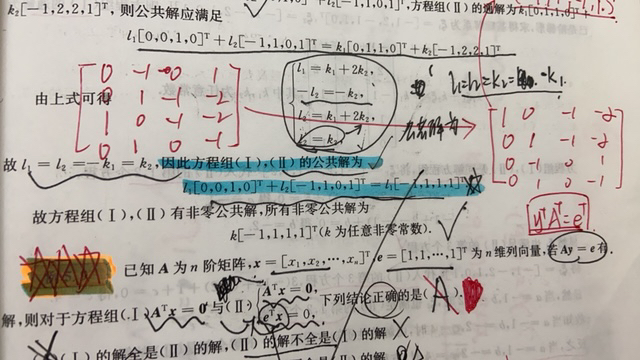 k₂[-1,2,2,1]ᵀ,则公共解应满足 方程组(Ⅱ)的通解为k₁[0,1,1,0]ᵀ+
l₁[0,0,1,0]ᵀ+l₂[-1,1,0,1]ᵀ=k₁[0,1,1,0]ᵀ+k₂[-1,2,2,1]ᵀ
由上式可得
-l₂=-k₂,
l₁=k₁+2k₂,
l₂=k₂,
公共解为
0 -1 0 1
0 1 -1 -2
1 0 -1 -2
0 1 0 -1
1 0 -1 -2
0 1 -1 -2
0 -1 0 1
0 1 0 -1
故 l₁=l₂=-k₁=k₂,因此方程组(Ⅰ),(Ⅱ)的公共解为
l₁[0,0,1,0]ᵀ+l₂[-1,1,0,1]ᵀ=l₁[-1,1,1,1]ᵀ
故方程组(Ⅰ),(Ⅱ)有非零公共解,所有非零公共解为
k[-1,1,1,1]ᵀ(k为任意非零常数).
yᵀAᵀ=eᵀ
已知A为n阶矩阵,x=[x₁,x₂,⋯,xₙ]ᵀ,e=[1,1,⋯,1]ᵀ为n维列向量,若Ay=e有
解,则对于方程组(Ⅰ)Aᵀx=0与(Ⅱ){Aᵀx=0, eᵀx=0, 下列结论正确的是( A ).
(Ⅰ)的解全是(Ⅱ)的解,(Ⅱ)的解不全是(Ⅰ)的解